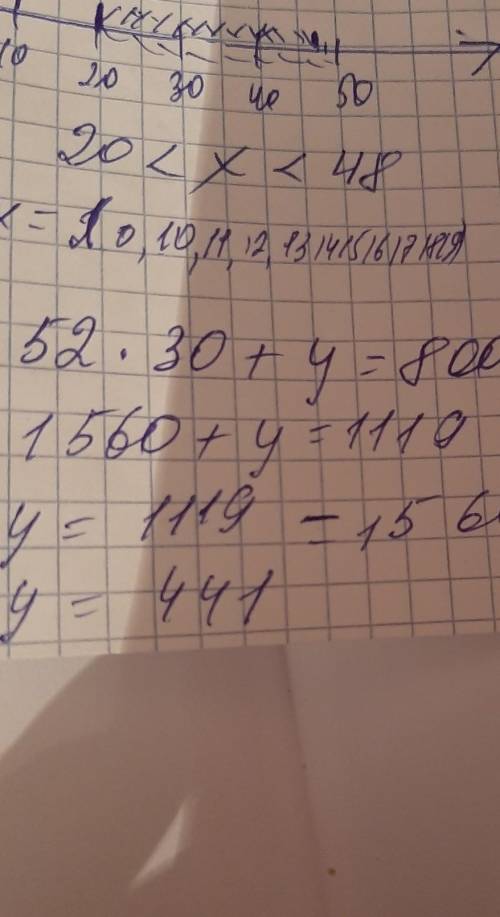 10 20 30 40 50
20 < x < 48
x = 0, 10, 11, 12, 13 14 15 16 17 18 19
52 · 30 + y = 800
1560 + y = 1119
y = 1119 = 156
y = 441